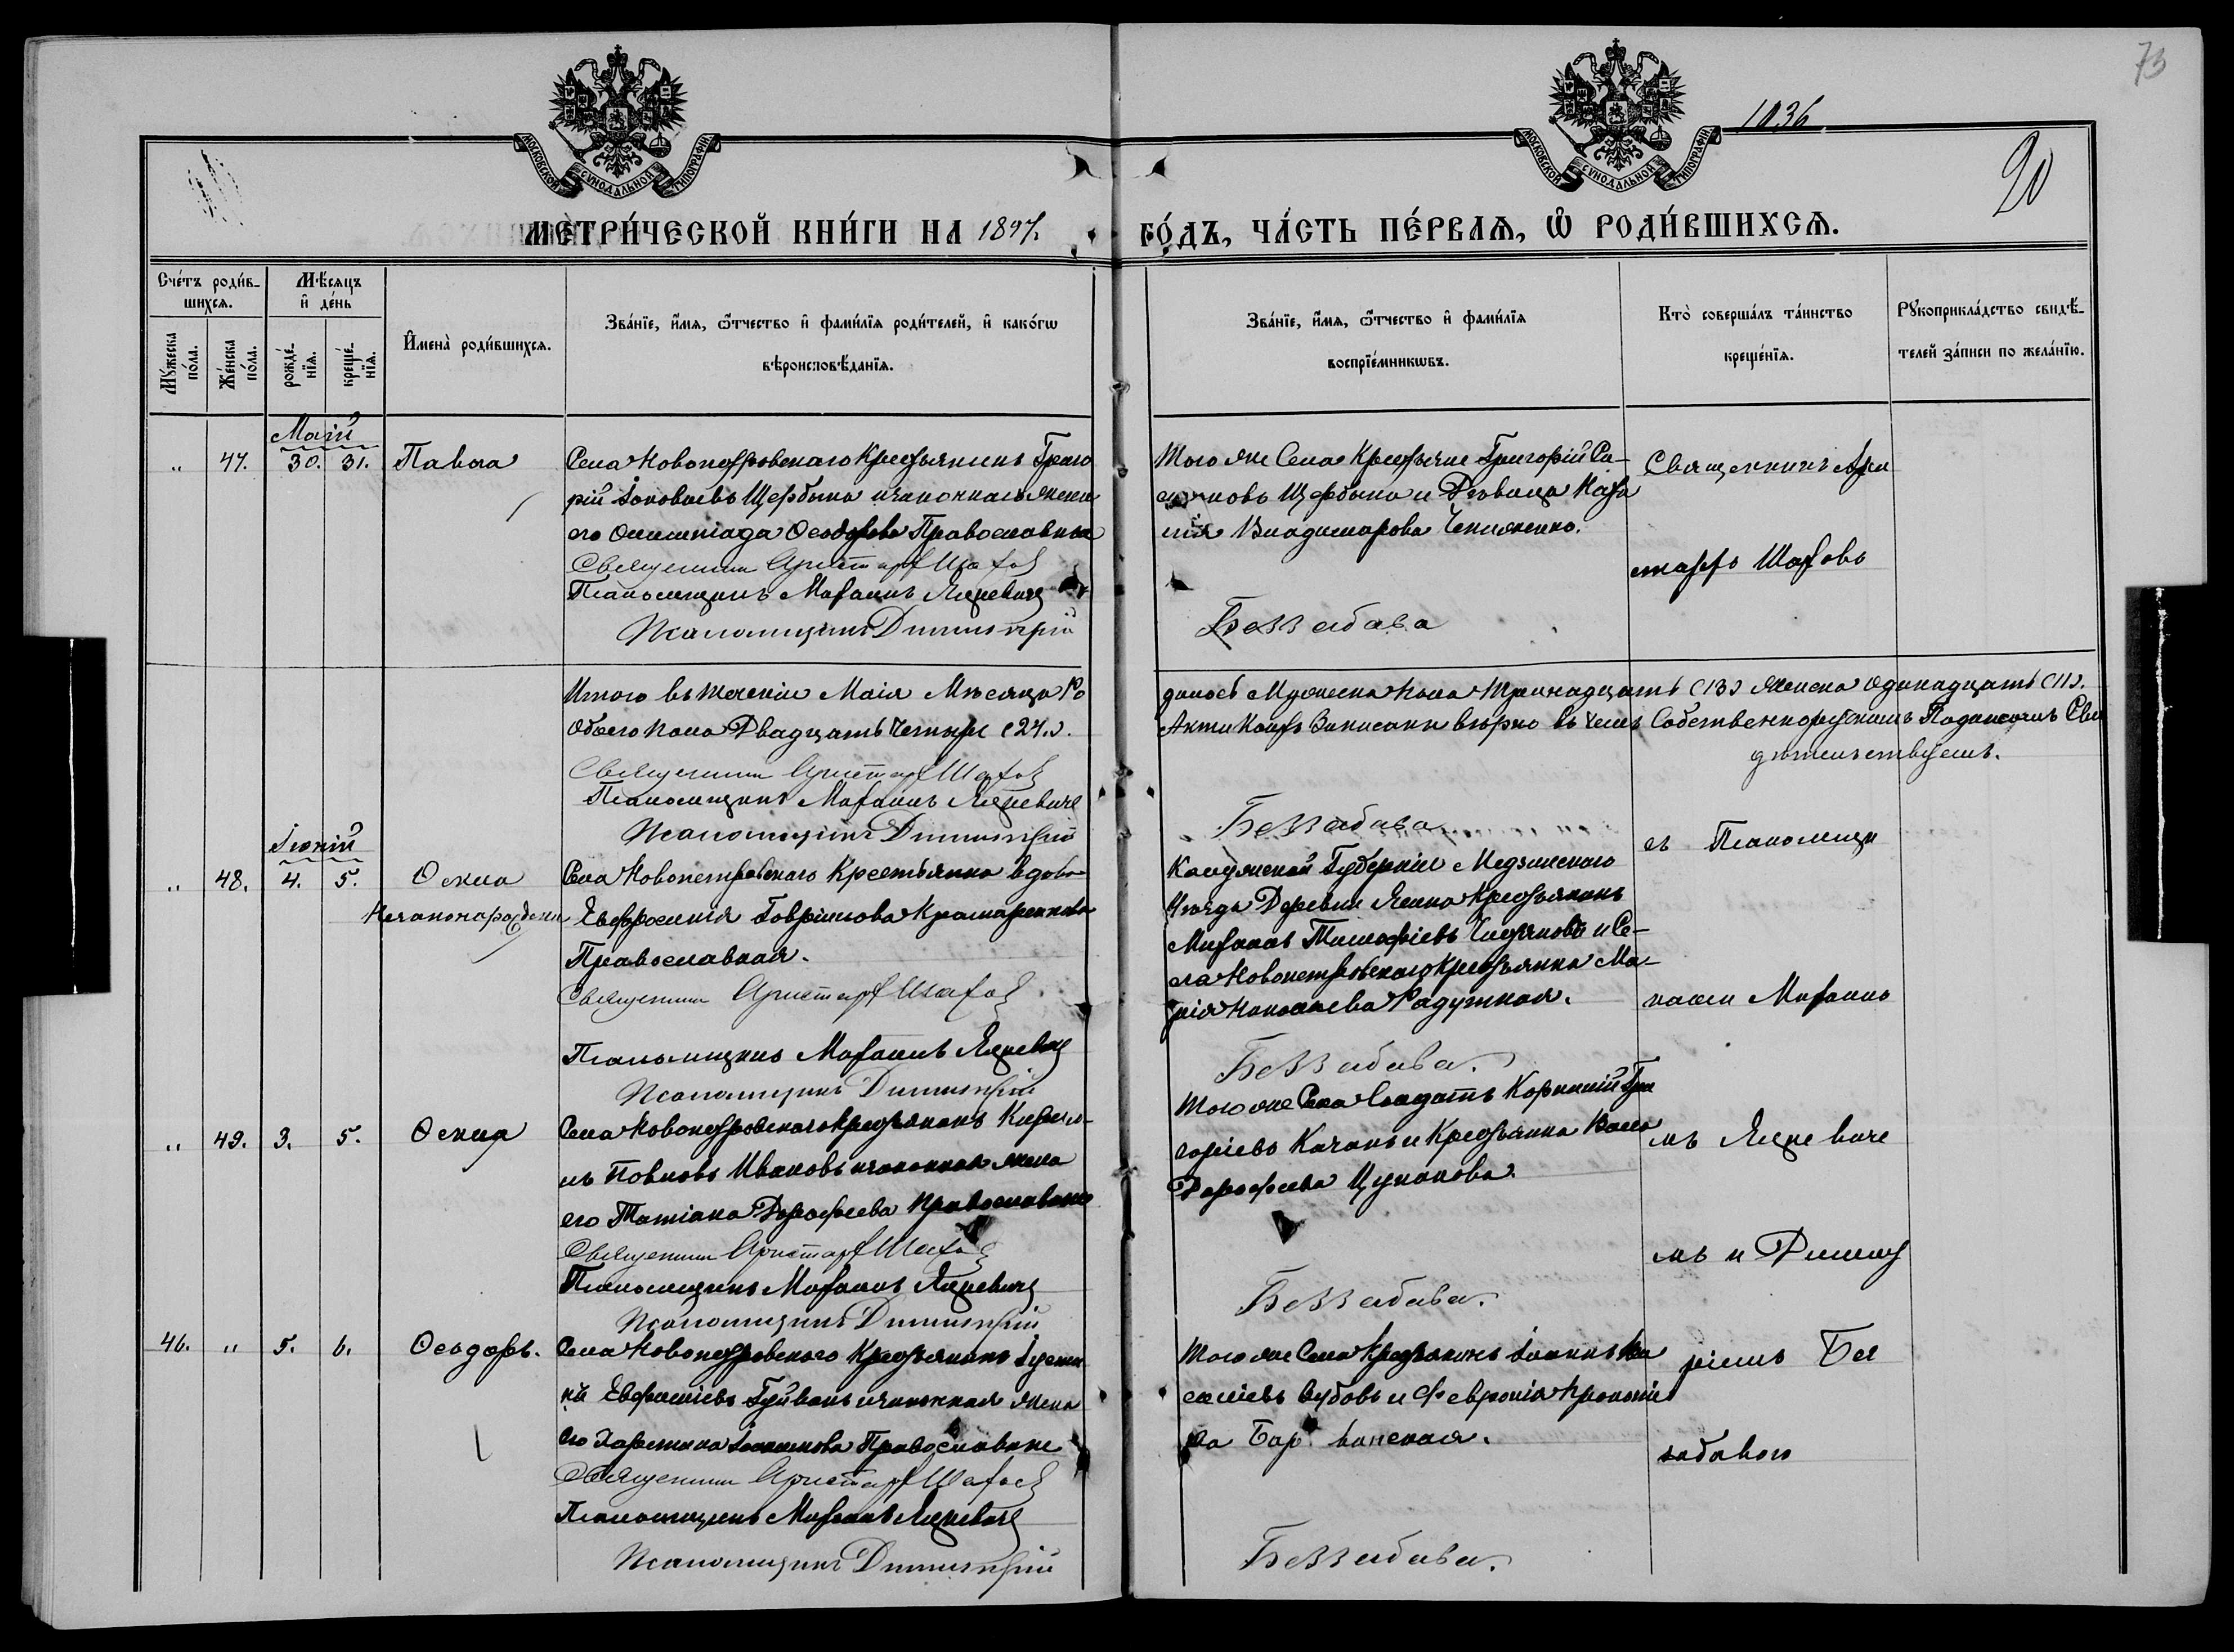 73
1036
20
МОСКОВСКОЙ СѴНОДАЛЬНОЙ ТИПОГРАФІИ
МОСКОВСКОЙ СѴНОДАЛЬНОЙ ТИПОГРАФІИ
МЕТРИ́ЧЕСКОЙ КНИ́ГИ НА 1897.
ГО́ДЪ, ЧА́СТЬ ПЕ́РВАѦ, Ѽ РОДИ́ВШИХСѦ.
Сче́тъ роди́в-
шихсѧ.
Мѣ́сѧцъ
и҆ де́нь
Мꙋ́жеска
по́ла.
Же́нска
по́ла.
рожде́-
нїѧ.
креще́-
нїѧ.
И҆мена̀ роди́вшихсѧ.
Зва́нїе, и҆́мѧ, ѻ҆́тчество и҆ фами́лїѧ роди́телей, и҆ како́гѡ
вѣроисповѣ́данїѧ.
Зва́нїе, и҆́мѧ, ѻ҆́тчество и҆ фами́лїѧ
воспрїе́мникѡвъ.
Кто̀ соверша́лъ та́инство
креще́нїѧ.
Рꙋкоприкла́дство свидѣ́-
телей за́писи по жела́нїю.
Маій
„ 47. 30. 31. Павла
Села Новопетровскаго Крестьянинъ Григо
рій Іаковлевъ Щербына и законная жена
его Олимпіада Ѳеодорова Православные
Священникъ Аристархъ Шаховъ
Псаломщикъ Михаилъ Яцкевичъ
Псаломщикъ Димитрій
Того же Села Крестьяне Григорій
Щербына и Дѣвица
Владимирова
Беззабава
Священникъ Ари
стархъ Шаховъ
Итого въ теченіи Маія Мѣсяца Ро
Обоего пола Двадцать Четыре (24).
Священникъ Аристархъ Шаховъ
Псаломщикъ Михаилъ Яцкевичъ
Псаломщикъ Димитрій
дилось Мужеска пола Тринадцать (13) Женска Одинадцать (11).
Акты Коихъ Записаны вѣрно въ чемъ Собственноручнымъ Подписомъ Сви
дѣтельствуемъ.
Беззабава
Іюній
„ 48. 4. 5. Ѳекла
Незаконорожденна
Села Новопетровскаго Крестьянка вдова
Евфросинія Гавріилова Крамаренкова
Православная.
Священникъ Аристархъ Шаховъ
Псаломщикъ Михаилъ Яцкевичъ
Псаломщикъ Димитрій
Калужской Губерніи Медынскаго
Уѣзда Деревни Крестьянинъ
Михаилъ Тимофіевъ и Се-
ла Новопетровскаго Крестьянка Ма-
рія Радужная.
Беззабава.
съ Псаломщи
ками Михаило
„ 49. 3. 5. Ѳекла
Села Новопетровскаго Крестьянинъ Кирил-
лъ Павловъ Ивановъ и законная жена
его Татіана Дорофеева Православные
Священникъ Аристархъ Шаховъ
Псаломщикъ Михаилъ Яцкевичъ
Псаломщикъ Димитрій
Того же Села Солдатъ Корнилій Гри
горіевъ Качанъ и Крестьянка
Дорофеева Цуканова.
Беззабава.
мъ Яцкевиче
мъ и Димит
46. „ 5. 6. Ѳеодоръ.
Села Новопетровскаго Крестьянинъ
Гуйванъ и законная жена
его Харитина Іоакимова Православные
Священникъ Аристархъ Шаховъ
Псаломщикъ Михаилъ Яцкевичъ
Псаломщикъ Димитрій
Того же Села Крестьянинъ
и Февронія
Беззабава.
ріемъ Без
забавою